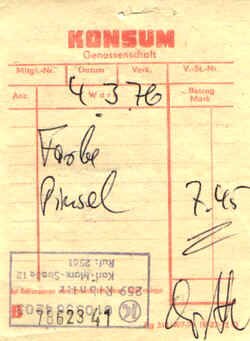 KONSUM
Genossenschaft
Mitgl.-Nr. Datum Verk. V.-St.-Nr.
Anz. Betrag
Mark
4 3 76
Farbe
Pinsel 7.45
Karl-Marx-Straße 12
Ruf: 2561
259 Ribnitz
78623 41